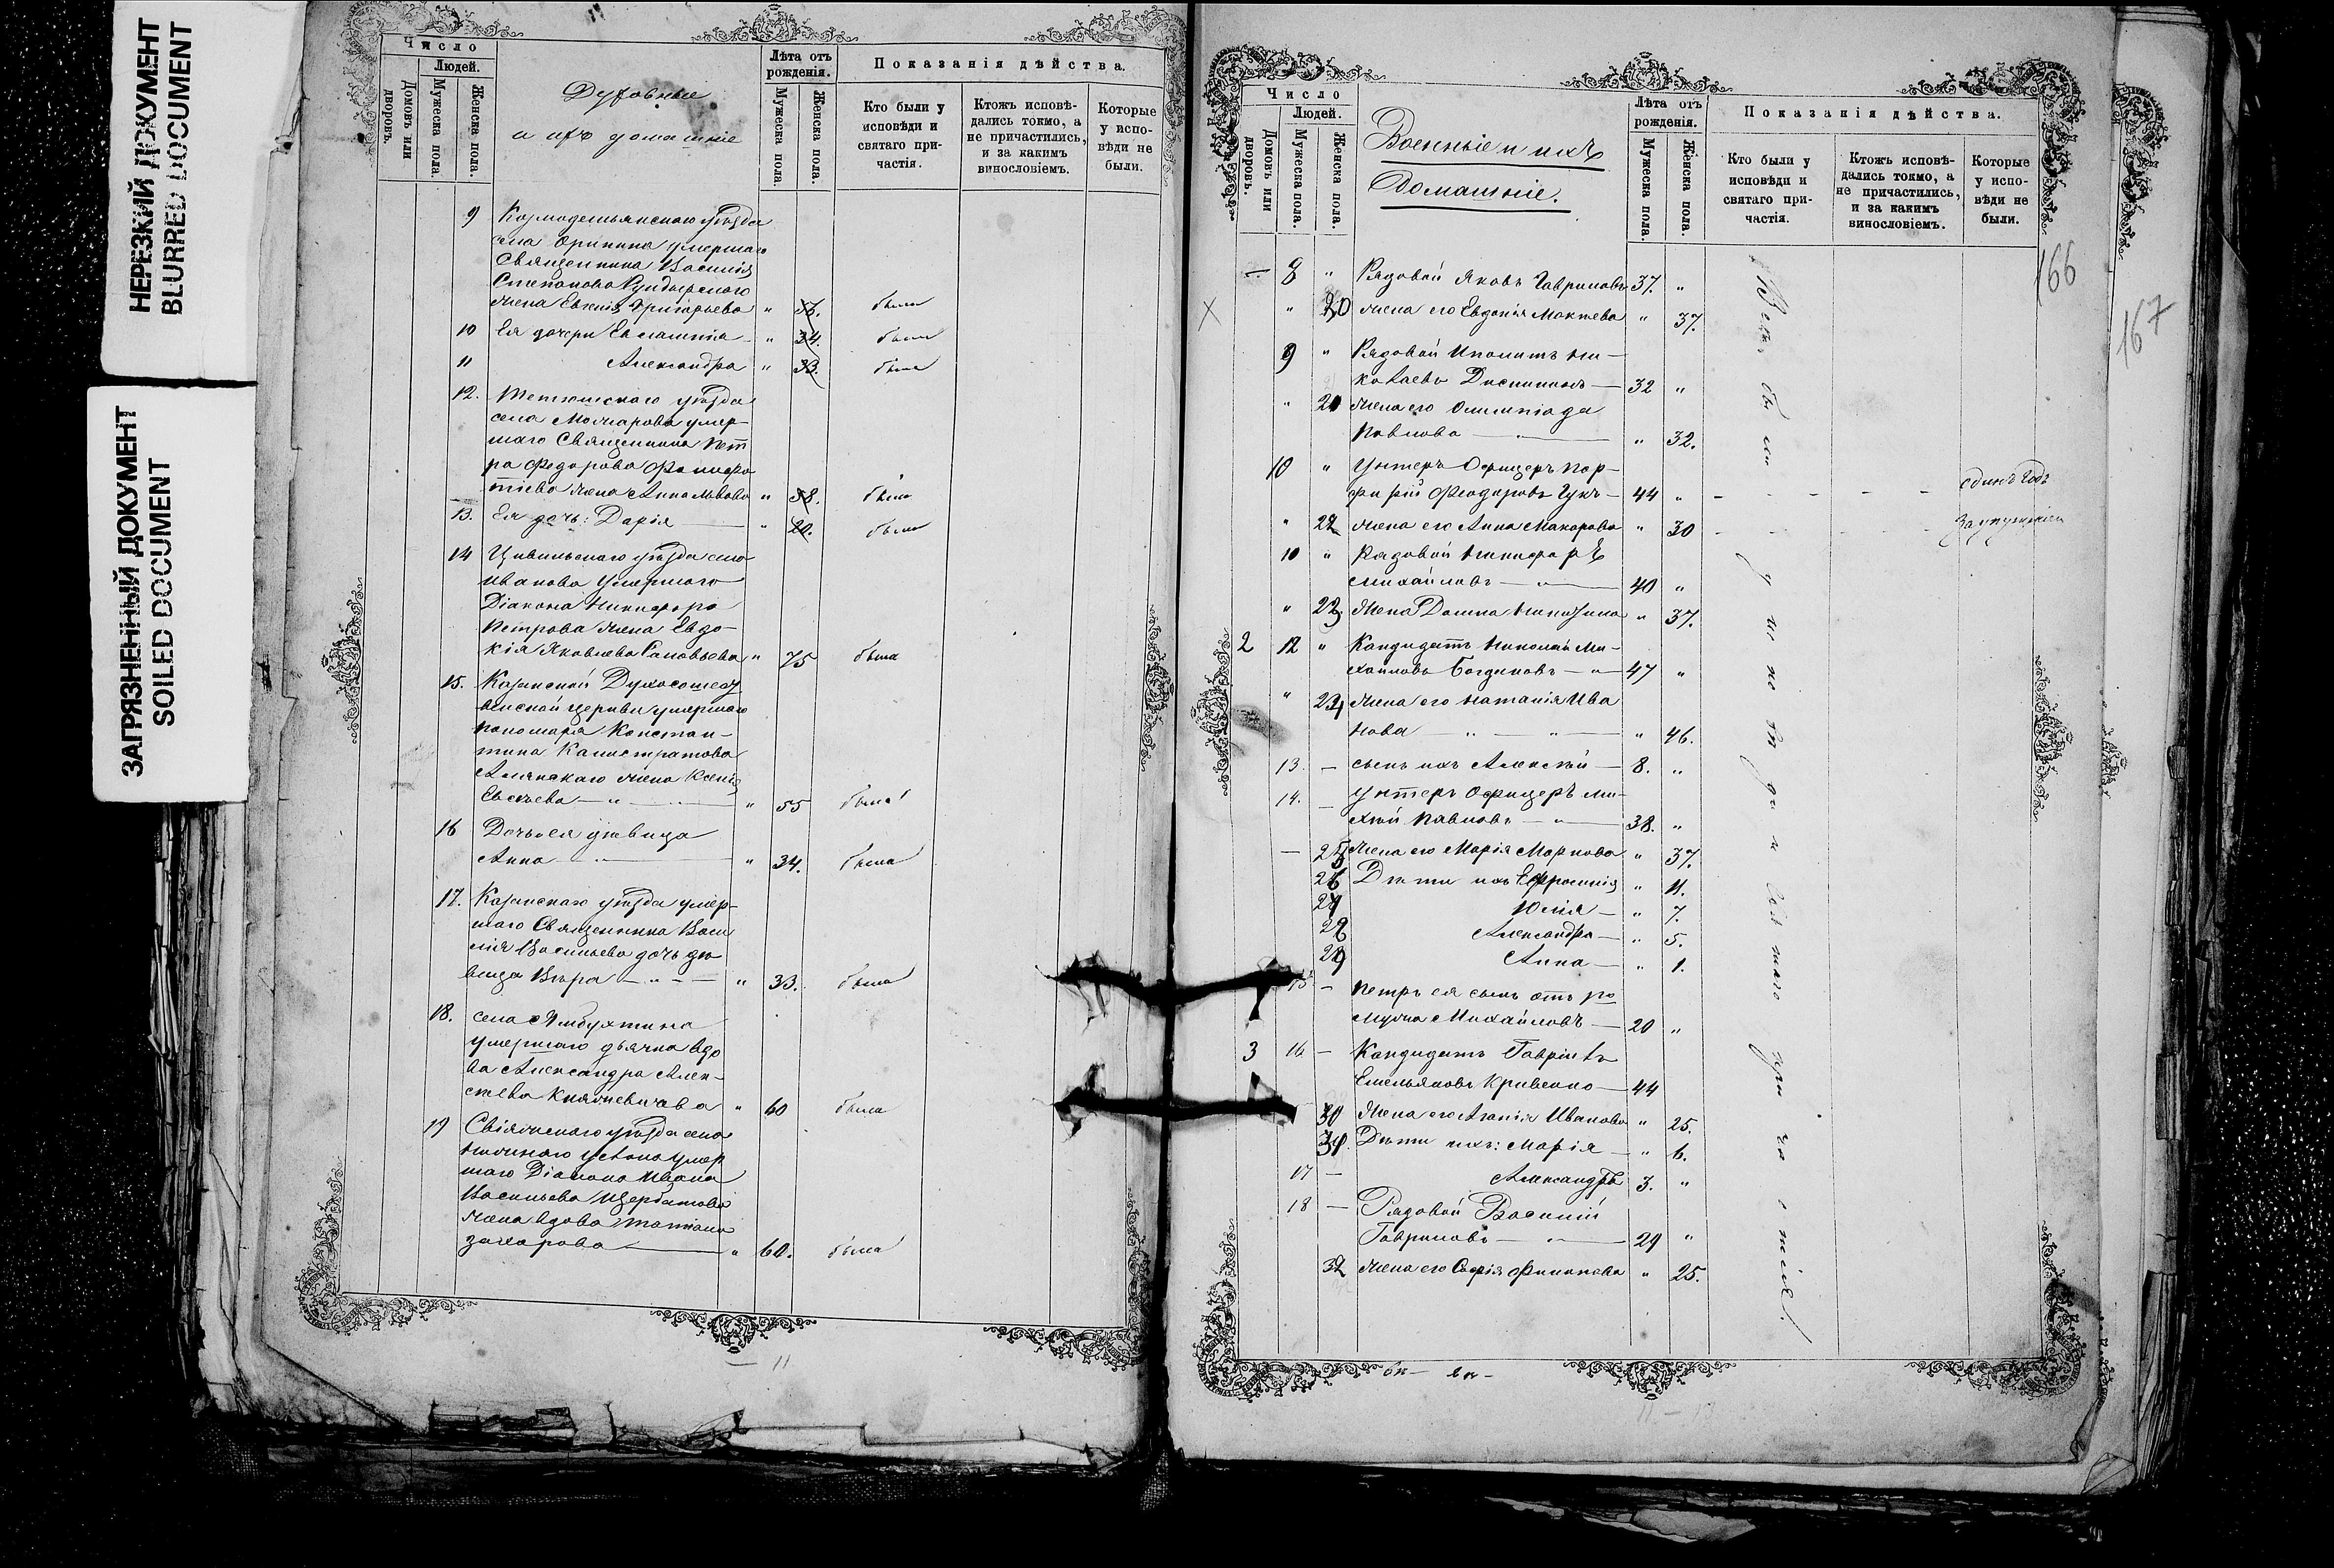 НЕРЕЗКИЙ ДОКУМЕНТ
BLURRED DOCUMENT
ЗАГРЯЗНЕННЫЙ ДОКУМЕНТ
SOILED DOCUMENT
Число
Людей.
Домовъ или дворовъ.
Мужеска пола.
Женска пола.
Духовные
и ихъ домашніе
Лѣта отъ рожденія.
Мужеска пола.
Женска пола.
Показанія дѣйства.
Кто были у исповѣди и святаго причастія.
Ктожъ исповѣдались токмо, а не причастились, и за какимъ винословіемъ.
Которые у исповѣди не были.
9 Козмодемьянскаго уѣзда
села Оринина умершаго
Священника Василія
Степанова
жена Евгенія Григорьева " была
10 Ея дочери Евлампія " 34. была
11 Александра " 33. была
12. Тетюшскаго уѣзда
села умер-
шаго Священника Пет
ра Федорова
жена Анна Львова " 58. была
13. Ея дочь: Дарія " 20. была
14 Цивильскаго уѣзда села
Иванова Умершаго
Діакона Никифора
Петрова жена Евдо-
кія Яковлева " 75 была
15. Казанской Духосошест
венской церкви умершаго
пономаря Констан-
тина Калистратова
жена Ксенія
" 55 была
16 Дочь ея дѣвица
Анна " 34. была
17. Казанскаго уѣзда умер-
шаго Священника Васи
лія Васильева дочь дѣ
вица Вѣра " 33. была
18. села
умершаго дьячка вдо
ва Александра Алек-
сѣева " 60 была
19 Свіяжскаго уѣзда села
умер
шаго Діакона Ивана
Васильева Щербатова
жена вдова Татіана
Захарова " 60. была
11
Число
Людей.
Домовъ или дворовъ.
Мужеска пола.
Женска пола.
Военные и ихъ
Домашніе.
Лѣта отъ рожденія.
Мужеска пола.
Женска пола.
Показанія дѣйства.
Кто были у исповѣди и святаго причастія.
Ктожъ исповѣдались токмо, а не причастились, и за какимъ винословіемъ.
Которые у исповѣди не были.
166
167
8 " Рядовой Яковъ Гавриловъ 37. "
" 20 жена его Евдокія " 37.
9 " Рядовой Иполитъ Ни-
колаевъ 32 "
" 21 жена его Олимпіада
Павлова " 32.
10 " Унтеръ Офицеръ Пор-
фирій Феодоровъ 44 " единъ годъ
" 22 жена его Анна Макарова " 30 за упущеніем
" Рядовой Никифоръ
Михайловъ 40 "
" 23 Жена Домна " 37.
2 12 " Кандидатъ Николай Ми-
хайловъ Богдановъ 47 "
" 24 жена его Наталія Ива
нова " 46.
13. – сынъ ихъ Алексѣй 8. "
14. – Унтеръ Офицеръ Ми-
хѣй Павловъ 38. "
– 25 жена его Марія Маркова " 37.
26 Дѣти ихъ Ефросинія " 11.
27 Юлія " 7.
28 Александра " 5.
29 Анна " 1.
15 – Петръ ея сынъ отъ 1го
мужа Михайловъ 20 "
3 16 – Кандидатъ Гавріилъ
Емельяновъ Кривенко 44
30 Жена его Агапія Иванова " 25.
31. Дѣти ихъ: Марія " 6.
17 – Александръ 3. "
18 – Рядовой Василій
Гавриловъ 29 "
32 жена его Софія Филипова " 25.
Всѣ были у исповѣди и святаго причастія.